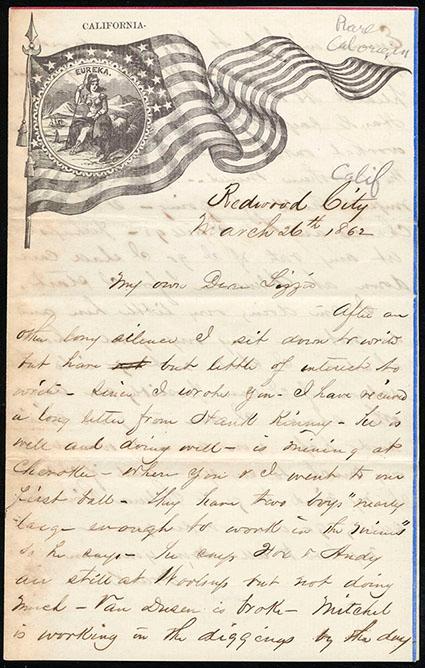 CALIFORNIA.
EUREKA.
Rare
Calif
Redwood City
March 26th 1862
My own Dear Lizzie
After an
other long silence I sit down to write
but have but little of interest to
write - since I wrote you - I have recived
a long letter from Hank Kinny - he is
well and doing well - is mining at
Cherokee - where you & I went to our
first ball - they have two boys "nearly
large enough to work in the mines"
so he says - he says Hoe & Andy
are still at Woolseys but not doing
much - Van Dusen is broke - Mitchel
is working in the diggings by the day